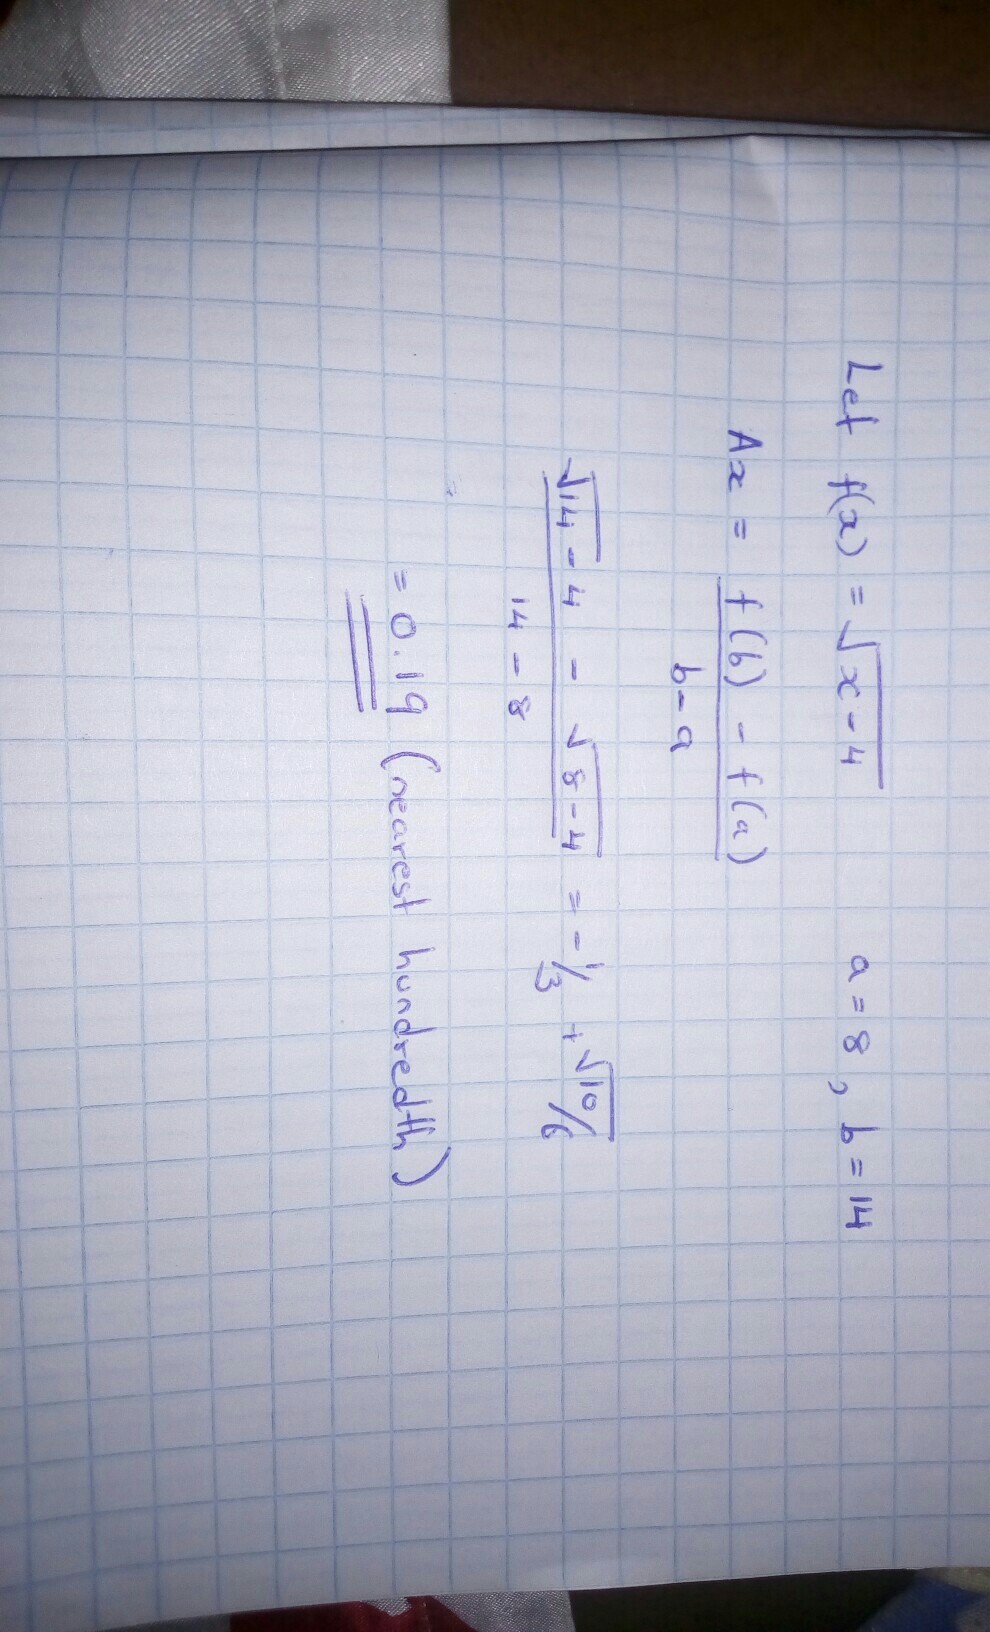 Let f(x) = √x-4 a = 8, b = 14
Ax = f(b) - f(a)
b-a
√14-4 - √8-4 = -1/3 + √10/6
14 - 8
= 0.19 (nearest hundredth)